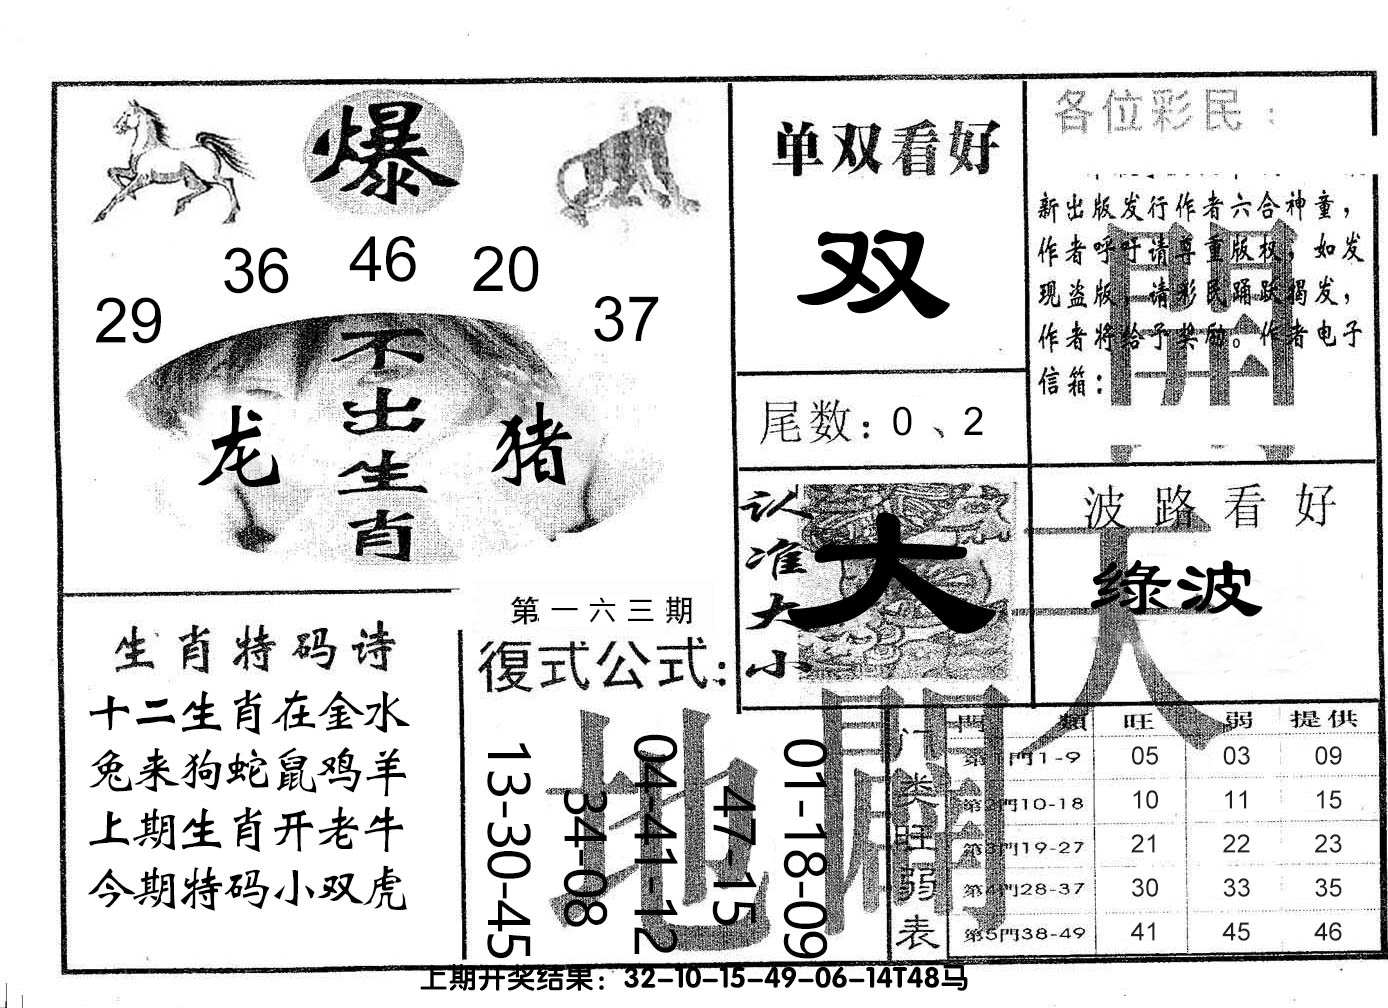 爆
36 46 20
29 37
不出生肖
龙 猪
单双看好
双
尾数：0、2
各位彩民：
新出版发行作者六合神童，
作者呼吁请尊重版权，如发
现盗版，请彩民踊跃揭发，
作者将给予奖励。作者电子
信箱：
開
认准大小
大
波路看好
綠波
天
生肖特码诗
十二生肖在金水
兔来狗蛇鼠鸡羊
上期生肖开老牛
今期特码小双虎
第一六三期
復式公式：
13-30-45
34-08
04-41-12
47-15
01-18-09
地
門类旺弱表
門 類 旺 弱 提供
第1門1-9 05 03 09
第2門10-18 10 11 15
第3門19-27 21 22 23
第4門28-37 30 33 35
第5門38-49 41 45 46
上期开奖结果：32-10-15-49-06-14T48马